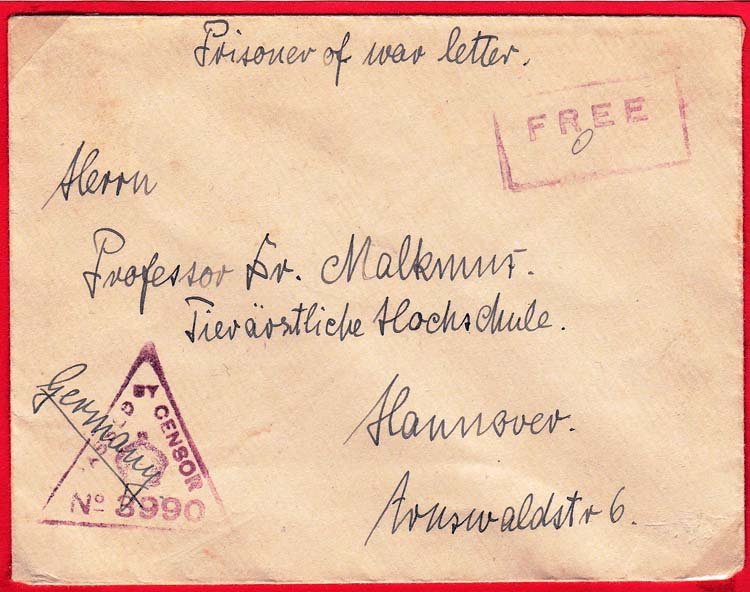 Prisoner of war letter.
FREE
Herrn
Professor Dr. Malkmus.
Tierärztliche Hochschule.
Germany
BY CENSOR
Nº 3990
Hannover.
Arnswaldstr 6.